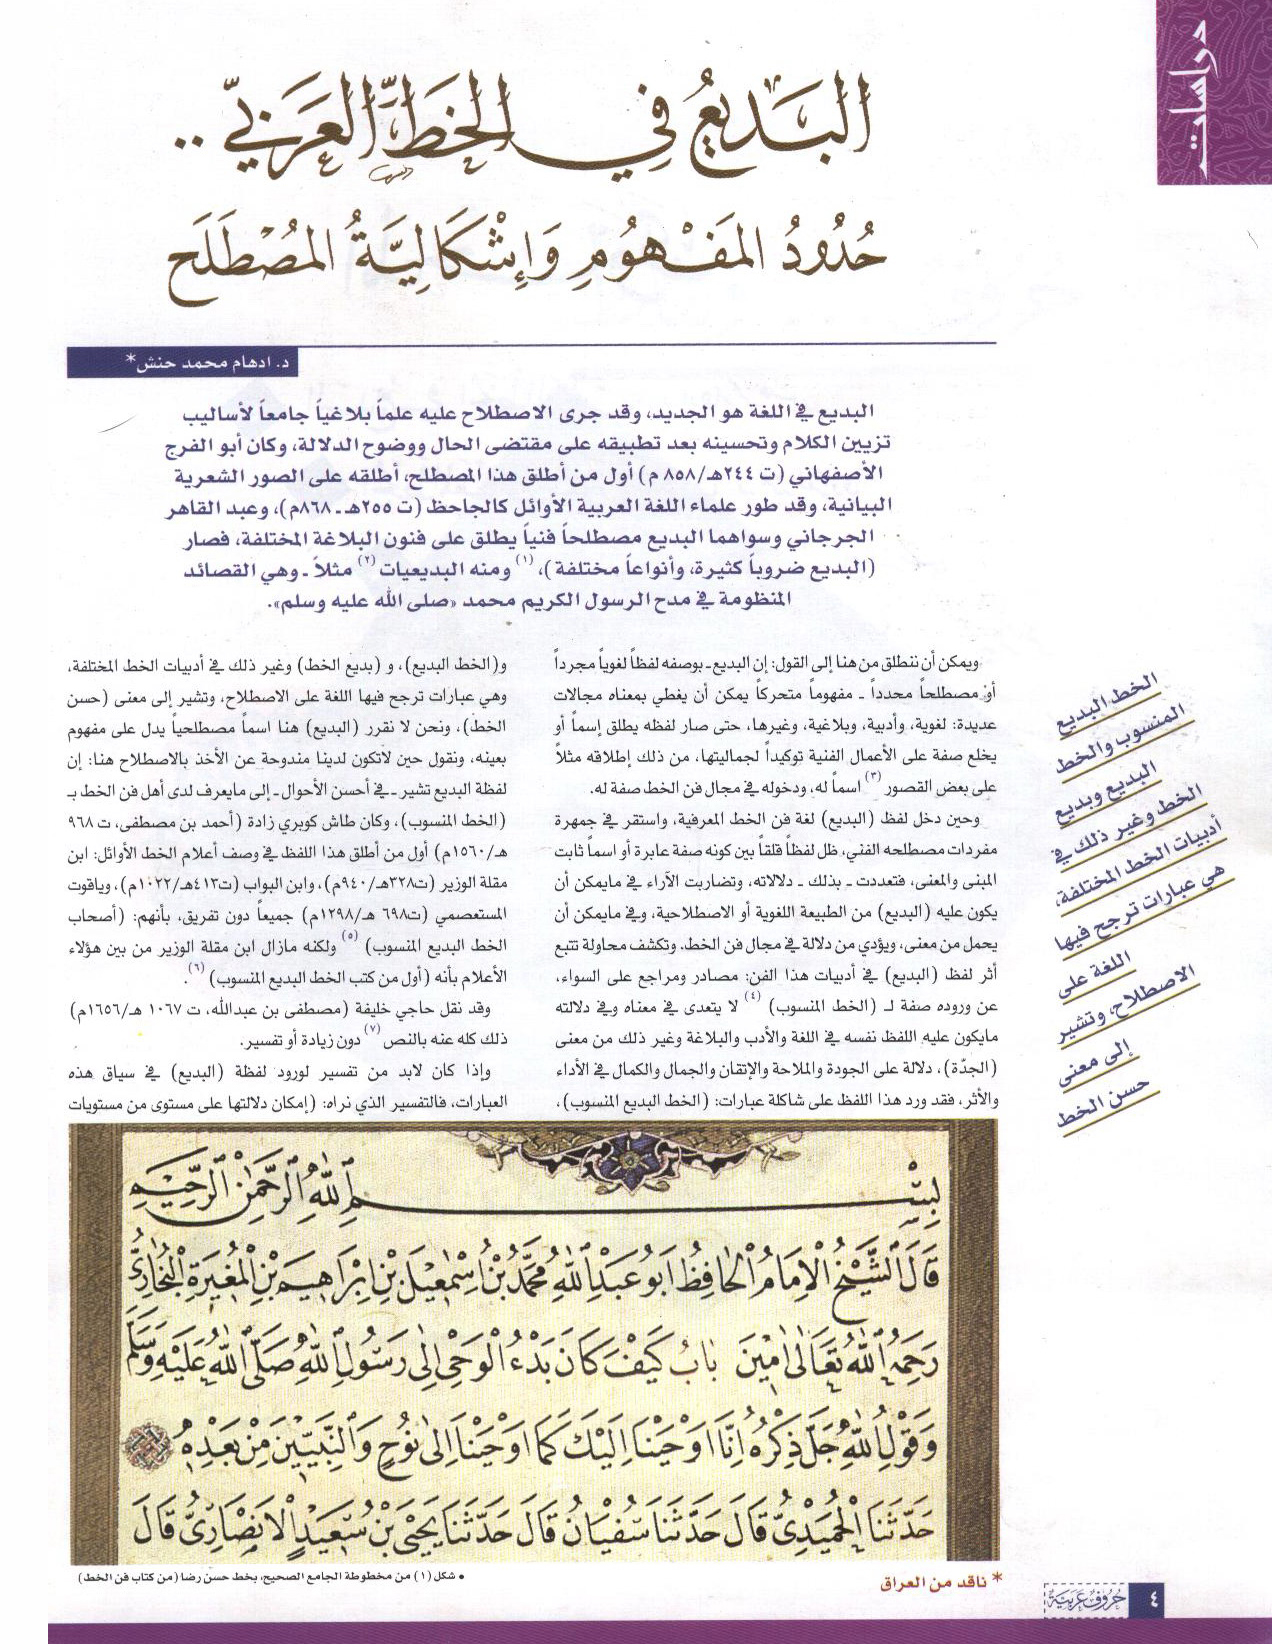 دراسات
البَديعُ في الخَطِّ العَرَبيّ ..
حُدُودُ المَفْهُومِ وَإِشْكَالِيَّةُ المُصْطَلَح
د. ادهام محمد حنش*
البديع في اللغة هو الجديد، وقد جرى الاصطلاح عليه علماً بلاغياً جامعاً لأساليب
تزيين الكلام وتحسينه بعد تطبيقه على مقتضى الحال ووضوح الدلالة، وكان أبو الفرج
الأصفهاني (ت ٢٤٤هـ/٨٥٨ م) أول من أطلق هذا المصطلح، أطلقه على الصور الشعرية
البيانية، وقد طور علماء اللغة العربية الأوائل كالجاحظ (ت ٢٥٥هـ ـ ٨٦٨م)، وعبد القاهر
الجرجاني وسواهما البديع مصطلحاً فنياً يطلق على فنون البلاغة المختلفة، فصار
(البديع ضروباً كثيرة، وأنواعاً مختلفة)، (١) ومنه البديعيات (٢) مثلاً ـ وهي القصائد
المنظومة في مدح الرسول الكريم محمد «صلى الله عليه وسلم».
ويمكن أن ننطلق من هنا إلى القول: إن البديع ـ بوصفه لفظاً لغوياً مجرداً
أو مصطلحاً محدداً ـ مفهوماً متحركاً يمكن أن يغطي بمعناه مجالات
عديدة: لغوية، وأدبية، وبلاغية، وغيرها، حتى صار لفظه يطلق إسماً أو
يخلع صفة على الأعمال الفنية توكيداً لجماليتها، من ذلك إطلاقه مثلاً
على بعض القصور (٣) اسماً له، ودخوله في مجال فن الخط صفة له.
وحين دخل لفظ (البديع) لغة فن الخط المعرفية، واستقر في جمهرة
مفردات مصطلحه الفني، ظل لفظاً قلقاً بين كونه صفة عابرة أو اسماً ثابت
المبنى والمعنى، فتعددت ـ بذلك ـ دلالاته، وتضاربت الآراء في مايمكن أن
يكون عليه (البديع) من الطبيعة اللغوية أو الاصطلاحية، وفي مايمكن أن
يحمل من معنى، ويؤدي من دلالة في مجال فن الخط. وتكشف محاولة تتبع
أثر لفظ (البديع) في أدبيات هذا الفن: مصادر ومراجع على السواء،
عن وروده صفة لـ (الخط المنسوب) (٤) لا يتعدى في معناه وفي دلالته
مايكون عليه اللفظ نفسه في اللغة والأدب والبلاغة وغير ذلك من معنى
(الجدّة)، دلالة على الجودة والملاحة والإتقان والجمال والكمال في الأداء
والأثر، فقد ورد هذا اللفظ على شاكلة عبارات: (الخط البديع المنسوب)،
و(الخط البديع)، و (بديع الخط) وغير ذلك في أدبيات الخط المختلفة،
وهي عبارات ترجح فيها اللغة على الاصطلاح، وتشير إلى معنى (حسن
الخط)، ونحن لا نقرر (البديع) هنا اسماً مصطلحياً يدل على مفهوم
بعينه، ونقول حين لاتكون لدينا مندوحة عن الأخذ بالاصطلاح هنا: إن
لفظة البديع تشير ـ في أحسن الأحوال ـ إلى مايعرف لدى أهل فن الخط بـ
(الخط المنسوب)، وكان طاش كوبري زادة (أحمد بن مصطفى، ت ٩٦٨
هـ/١٥٦٠م) أول من أطلق هذا اللفظ في وصف أعلام الخط الأوائل: ابن
مقلة الوزير (ت٣٢٨هـ/٩٤٠م)، وابن البواب (ت٤١٣هـ/١٠٢٢م)، وياقوت
المستعصمي (ت٦٩٨ هـ/١٢٩٨م) جميعاً دون تفريق، بأنهم: (أصحاب
الخط البديع المنسوب) (٥) ولكنه مازال ابن مقلة الوزير من بين هؤلاء
الأعلام بأنه (أول من كتب الخط البديع المنسوب) (٦).
وقد نقل حاجي خليفة (مصطفى بن عبدالله، ت ١٠٦٧ هـ/١٦٥٦م)
ذلك كله عنه بالنص (٧) دون زيادة أو تفسير.
وإذا كان لابد من تفسير لورود لفظة (البديع) في سياق هذه
العبارات، فالتفسير الذي نراه: (إمكان دلالتها على مستوى من مستويات
الخط البديع
المنسوب والخط
البديع وبديع
الخط وغير ذلك في
أدبيات الخط المختلفة،
هي عبارات ترجح فيها
اللغة على
الاصطلاح، وتشير
إلى معنى
حسن الخط
بِسْمِ اللهِ الرَّحْمٰنِ الرَّحِيْمِ
قَالَ الشَّيْخُ الْإِمَامُ الْحَافِظُ أَبُو عَبْدِ اللهِ مُحَمَّدُ بْنُ اِسْمٰعِيْلَ بْنِ اِبْرَاهِيْمَ بْنِ الْمُغِيْرَةِ الْبُخَارِيُّ
رَحِمَهُ اللهُ تَعَالٰى اٰمِيْنَ بَابُ كَيْفَ كَانَ بَدْءُ الْوَحْيِ اِلٰى رَسُولِ اللهِ صَلَّى اللهُ عَلَيْهِ وَسَلَّمَ
وَقَوْلِ اللهِ جَلَّ ذِكْرُهُ اِنَّا اَوْحَيْنَا اِلَيْكَ كَمَا اَوْحَيْنَا اِلٰى نُوحٍ وَالنَّبِيِّيْنَ مِنْ بَعْدِهِ
حَدَّثَنَا الْحُمَيْدِيُّ قَالَ حَدَّثَنَا سُفْيَانُ قَالَ حَدَّثَنَا يَحْيَى بْنُ سَعِيْدٍ الْاَنْصَارِيُّ قَالَ
• شكل (١) من مخطوطة الجامع الصحيح، بخط حسن رضا (من كتاب فن الخط)
* ناقد من العراق
حروف عربية
٤